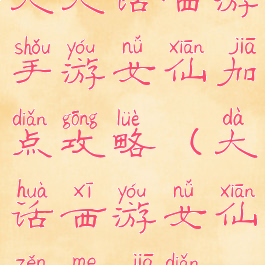 话 西 游
shǒu yóu nǚ xiān jiā
手 游 女 仙 加
diǎn gōng lüè dà
点 攻 略 ( 大
huà xī yóu nǚ xiān
话 西 游 女 仙
zěn me jiā diǎn